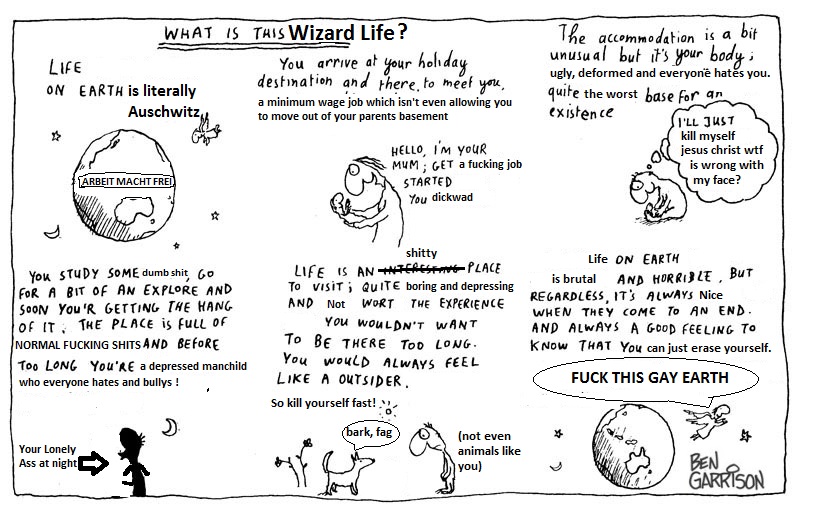 WHAT IS THIS Wizard Life?
LIFE
ON EARTH is literally
Auschwitz
ARBEIT MACHT FREI
You arrive at your holiday
destination and there, to meet you,
a minimum wage job which isn't even allowing you
to move out of your parents basement
HELLO, I'M YOUR
MUM; GET a fucking job
STARTED
YOU dickwad
The accommodation is a bit
unusual but it's your body;
ugly, deformed and everyone hates you.
quite the worst base for an
existence
I'LL JUST
kill myself
jesus christ wtf
is wrong with
my face?
YOU STUDY SOME dumb shit, GO
FOR A BIT OF AN EXPLORE AND
SOON YOU'R GETTING THE HANG
OF IT. THE PLACE IS FULL OF
NORMAL FUCKING SHITS AND BEFORE
TOO LONG YOU'RE a depressed manchild
who everyone hates and bullys !
Your Lonely
Ass at night
shitty
LIFE IS AN INTERESTING PLACE
TO VISIT; QUITE boring and depressing
AND Not WORT THE EXPERIENCE
YOU WOULDN'T WANT
TO BE THERE TOO LONG.
YOU WOULD ALWAYS FEEL
LIKE A OUTSIDER.
So kill yourself fast!
bark, fag
(not even
animals like
you)
Life ON EARTH
is brutal AND HORRIBLE, BUT
REGARDLESS, IT'S ALWAYS Nice
WHEN THEY COME TO AN END.
AND ALWAYS A GOOD FEELING TO
KNOW THAT YOU can just erase yourself.
FUCK THIS GAY EARTH
BEN
GARRISON